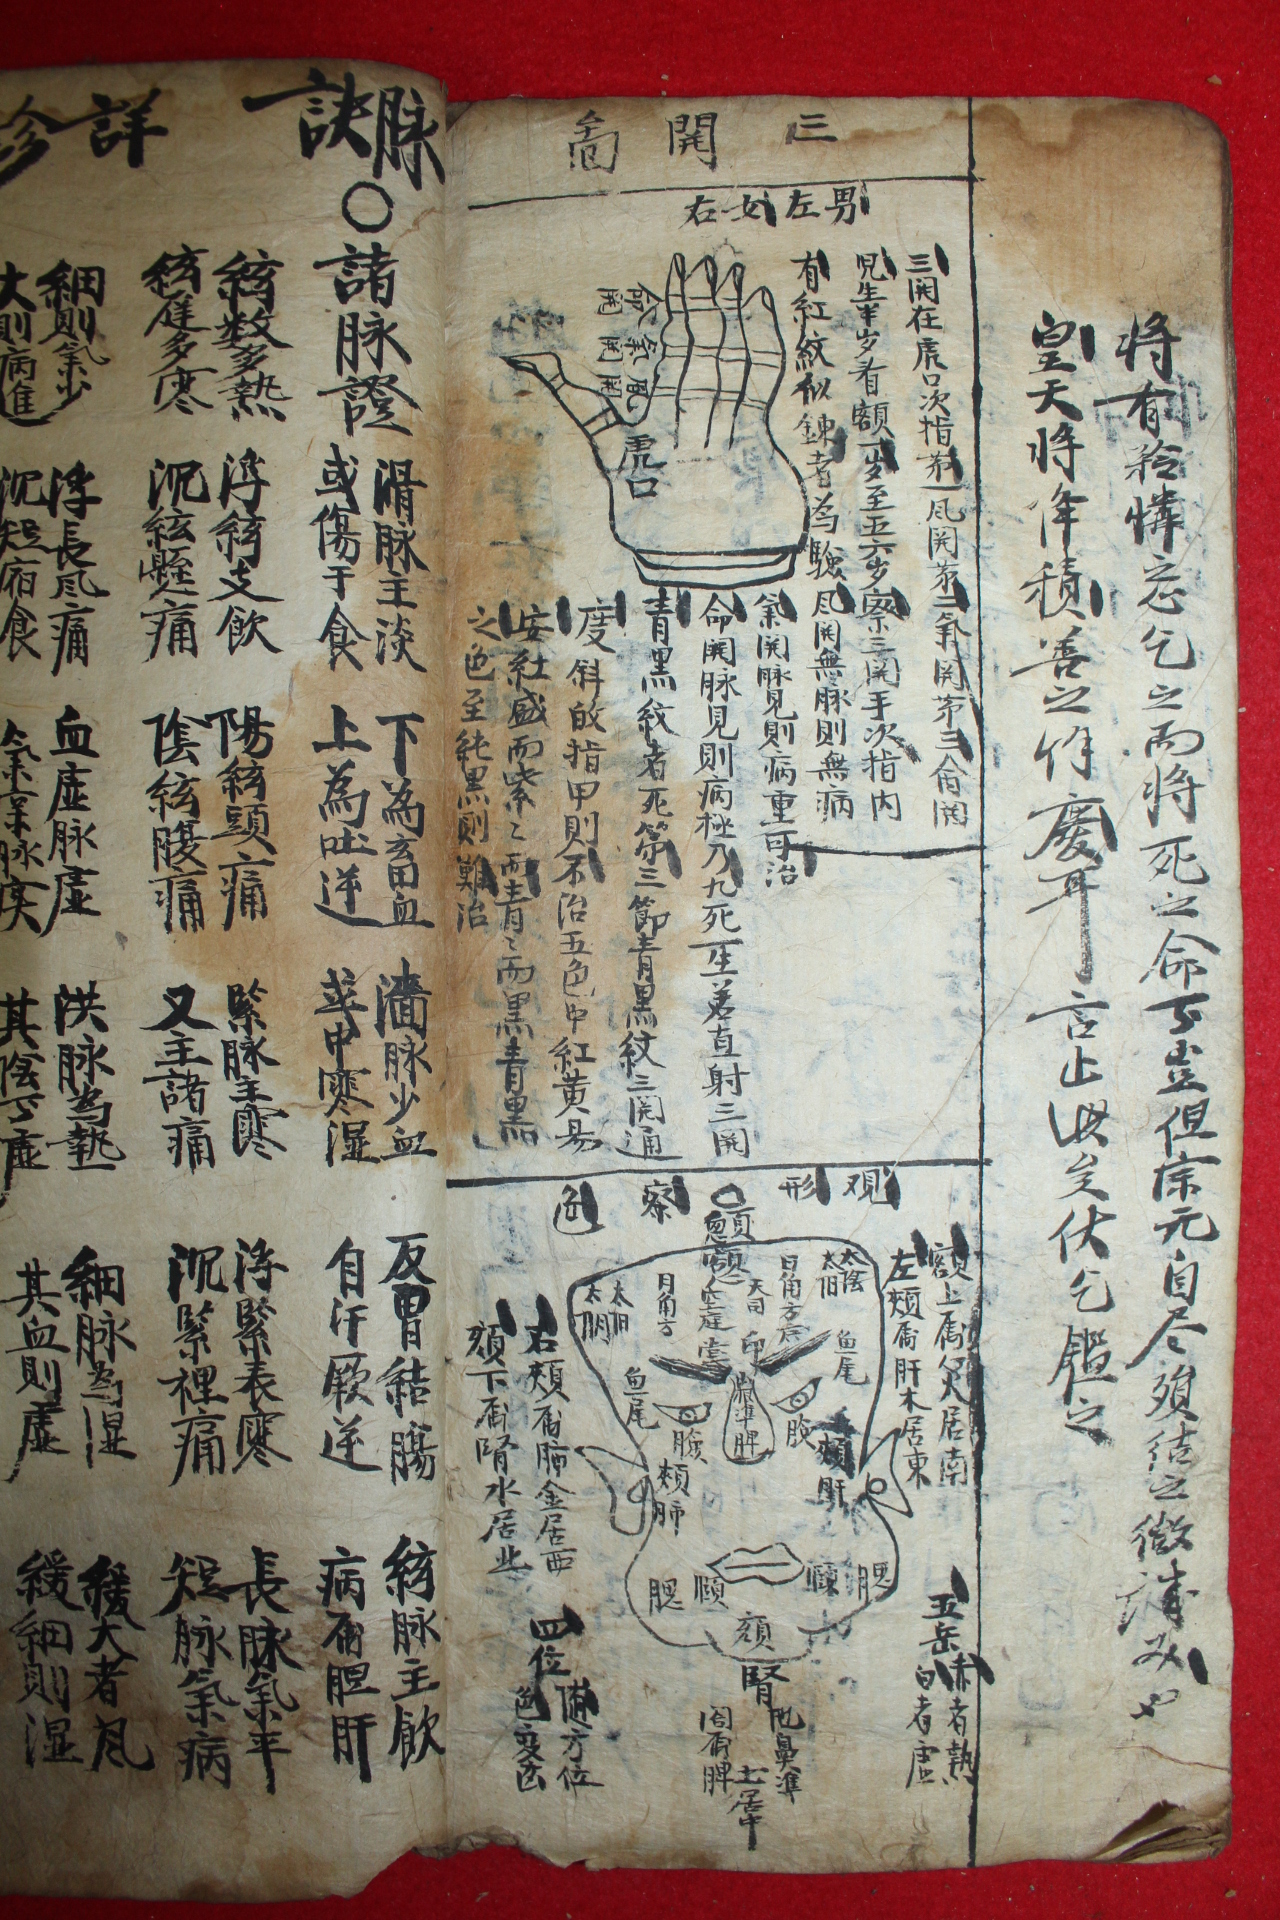 將有矜憐忘乞之而將死之命下豈但宗元自尽須結之微誠
皇天將降積善之餘慶耳言止此矣伏乞鑑之
三關啚
男左女右
三関在虎口次指苐一風関苐二氣関苐三命関
兒生半岁看額一岁至五六岁察三関手次指內
有紅紋似鍊者為驗風関無脉則無病
氣関脉見則病重可治
命関脉見則病極乃九死一生若直射三関
青黑紋者死第三節青黑紋三関通
度斜的指甲則不治五色中紅黃易
安紅盛而紫紫而青青而黑青黑
之色至純黑則難治
命関
氣関
風関
虎口
觀形察色
額上屬火居南
左頰屬肝木居東
右頰屬肺金居西
頦下屬腎水居北
太陰
太阳
日角方
天司
印
太阳
日角方
魚尾
魚尾
準脾
臉
臉
頰肝
頰肺
腮
腮
頦
腎
鼻準
屬脾土居中
五岳
赤者熱
白者虛
四位
隨方位
色變
脉訣
○諸脉證
滑脉主淡
或傷于食
下為畜血
上為吐逆
濇脉少血
或中寒湿
反胃結腸
自汗厥逆
絃脉主飮
病屬胆肝
絃数多熱
絃遲多寒
浮絃支飮
沉絃懸痛
陽絃頭痛
陰絃腹痛
緊脉主寒
又主諸痛
浮緊表寒
沉緊裡痛
長脉氣平
短脉氣病
詳診
細則氣少
大則病進
浮長風痛
沉短宿食
血虛脉虛
氣實脉实
洪脉為熱
其陰下虛
細脉為湿
其血則虛
緩大者風
緩細則湿